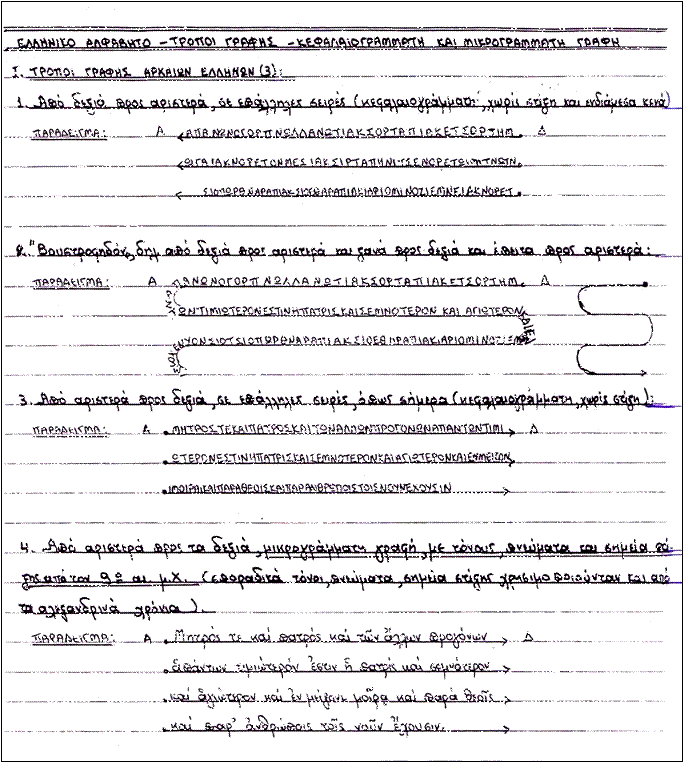 ΕΛΛΗΝΙΚΟ ΑΛΦΑΒΗΤΟ - ΤΡΟΠΟΙ ΓΡΑΦΗΣ - ΚΕΦΑΛΑΙΟΓΡΑΜΜΑΤΗ ΚΑΙ ΜΙΚΡΟΓΡΑΜΜΑΤΗ ΓΡΑΦΗ
I. ΤΡΟΠΟΙ ΓΡΑΦΗΣ ΑΡΧΑΙΩΝ ΕΛΛΗΝΩΝ (3):
1. Από δεξιά προς αριστερά, σε επάλληλες σειρές (κεφαλαιογράμματη, χωρίς στίξη και ενδιάμεσα κενά)
ΠΑΡΑΔΕΙΓΜΑ: Α ΑΠΑΝΩΝΟΓΟΡΠΝΩΛΛΑΝΩΤΙΑΚΣΟΡΤΑΠΙΑΚΕΤΣΟΡΤΗΜ Δ
2. "Βουστροφηδόν", δηλ από δεξιά προς αριστερά και ξανά προς δεξιά και έπειτα προς αριστερά:
ΠΑΡΑΔΕΙΓΜΑ: Α ΠΑΝΩΝΟΓΟΡΠΝΩΛΛΑΝΩΤΙΑΚΣΟΡΤΑΠΙΑΚΕΤΣΟΡΤΗΜ Δ
ΩΝΤΙΜΙΩΤΕΡΟΝΕΣΤΙΝΗΠΑΤΡΙΣΚΑΙΣΕΜΝΟΤΕΡΟΝ ΚΑΙ ΑΓΙΩΤΕΡΟΝ
3. Από αριστερά προς δεξιά, σε επάλληλες σειρές, όπως σήμερα (κεφαλαιογράμματη, χωρίς στίξη):
ΠΑΡΑΔΕΙΓΜΑ: Α ΜΗΤΡΟΣΤΕΚΑΙΠΑΤΡΟΣΚΑΙΤΩΝΑΛΛΩΝΠΡΟΓΟΝΩΝΑΠΑΝΤΩΝΤΙΜΙ Δ
ΩΤΕΡΟΝΕΣΤΙΝΗΠΑΤΡΙΣΚΑΙΣΕΜΝΟΤΕΡΟΝΚΑΙΑΓΙΩΤΕΡΟΝΚΑΙΕΝΜΕΙΖΟΝ
ΙΜΟΙΡΑΙΚΑΙΠΑΡΑΘΕΟΙΣΚΑΙΠΑΡΑΝΘΡΩΠΟΙΣΤΟΙΣΝΟΥΝΕΧΟΥΣΙΝ
4. Από αριστερά προς τα δεξιά, μικρογράμματη γραφή, με τόνους, πνεύματα και σημεία στί
ξης από τον 9ο αι. μ.Χ. (σποραδικά τόνοι, πνεύματα, σημεία στίξης χρησιμοποιούνταν και από
τα αλεξανδρινά χρόνια).
ΠΑΡΑΔΕΙΓΜΑ: Α Μητρός τε καί πατρός καί τῶν ἄλλων προγόνων Δ
ἁπάντων τιμιώτερόν ἐστιν ἡ πατρίς καί σεμνότερον
καί ἁγιώτερον καί ἐν μείζονι μοίρᾳ καί παρά θεοῖς
καί παρ' ἀνθρώποις τοῖς νοῦν ἔχουσιν.